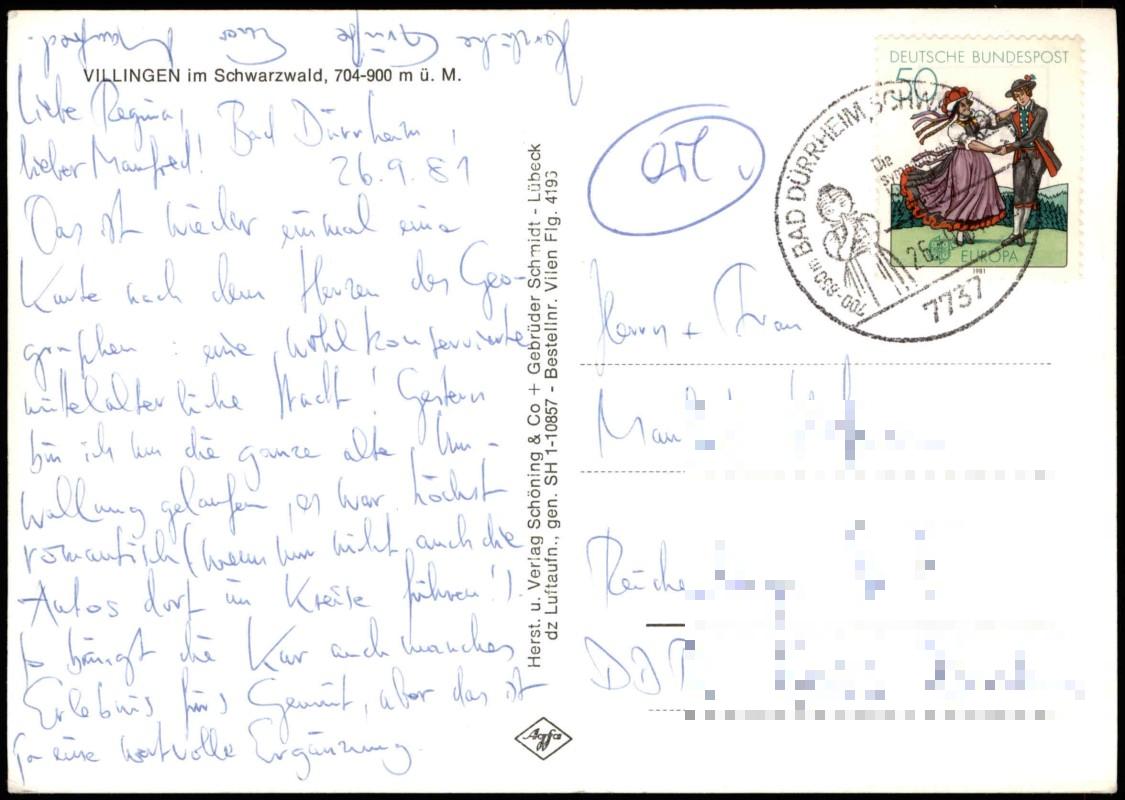 Herzliche Grüße Euer Manfred.
VILLINGEN im Schwarzwald, 704-900 m ü. M.
Liebe Regina,
lieber Manfred!
Bad Dürrheim,
26.9.81
Das ist wieder einmal eine
Karte nach dem Herzen des Geo-
graphen: eine wohlkonservierte
mittelalterliche Stadt! Gestern
bin ich um die ganze alte Um-
wallung gelaufen, es war höchst
romantisch (wenn nur nicht auch die
Autos dort im Kreise führen!).
So bringt die Kur auch manches
Erlebnis fürs Gemüt, aber das ist
ja eine wertvolle Ergänzung.
Herst. u. Verlag Schöning & Co + Gebrüder Schmidt - Lübeck
dz Luftaufn., gen. SH 1-10857 - Bestellnr. Vilen Flg. 4193
Agfa
DEUTSCHE BUNDESPOST
50
EUROPA
1981
BAD DÜRRHEIM, SCHW
Die
700-850m
7737
Herrn + Frau
Man
Reiche
DDR